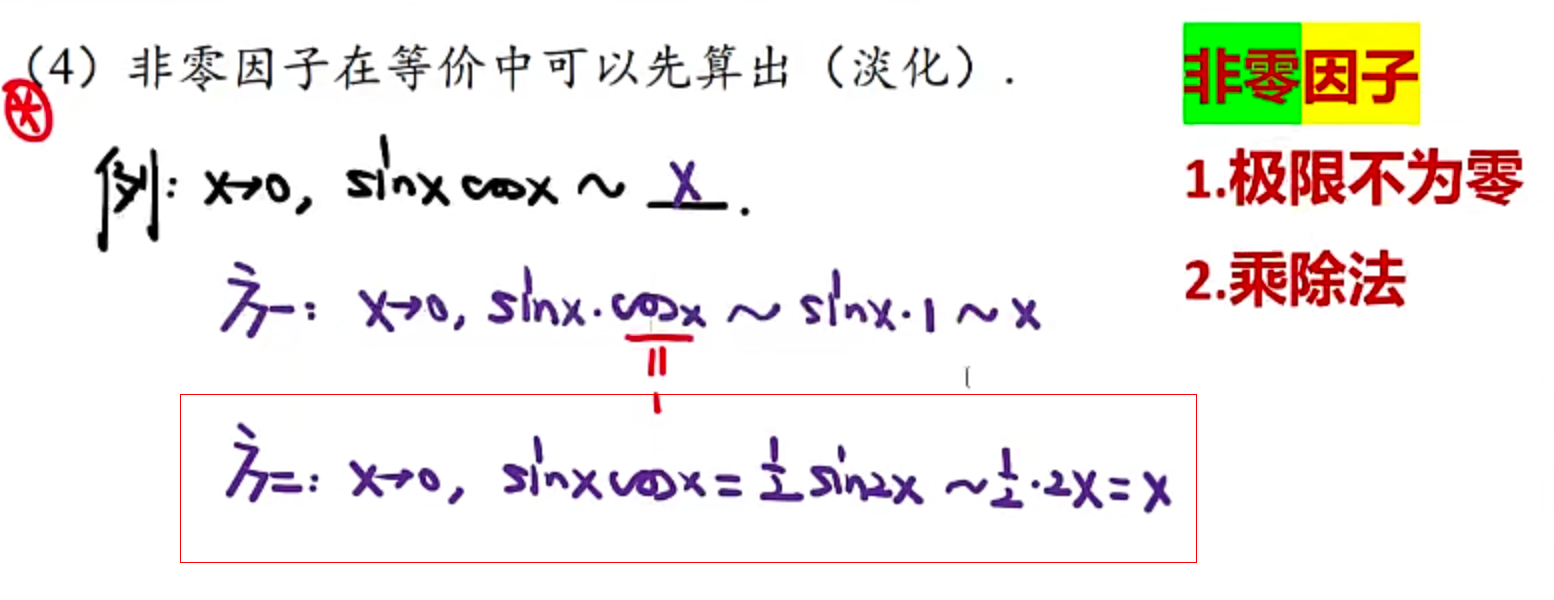 (4)非零因子在等价中可以先算出(淡化).
例: x→0, sinx cosx ~ x .
方一: x→0, sinx·cosx ~ sinx·1 ~ x
=
1
方二: x→0, sinxcosx = 1/2 sin2x ~ 1/2·2x = x
非零因子
1.极限不为零
2.乘除法